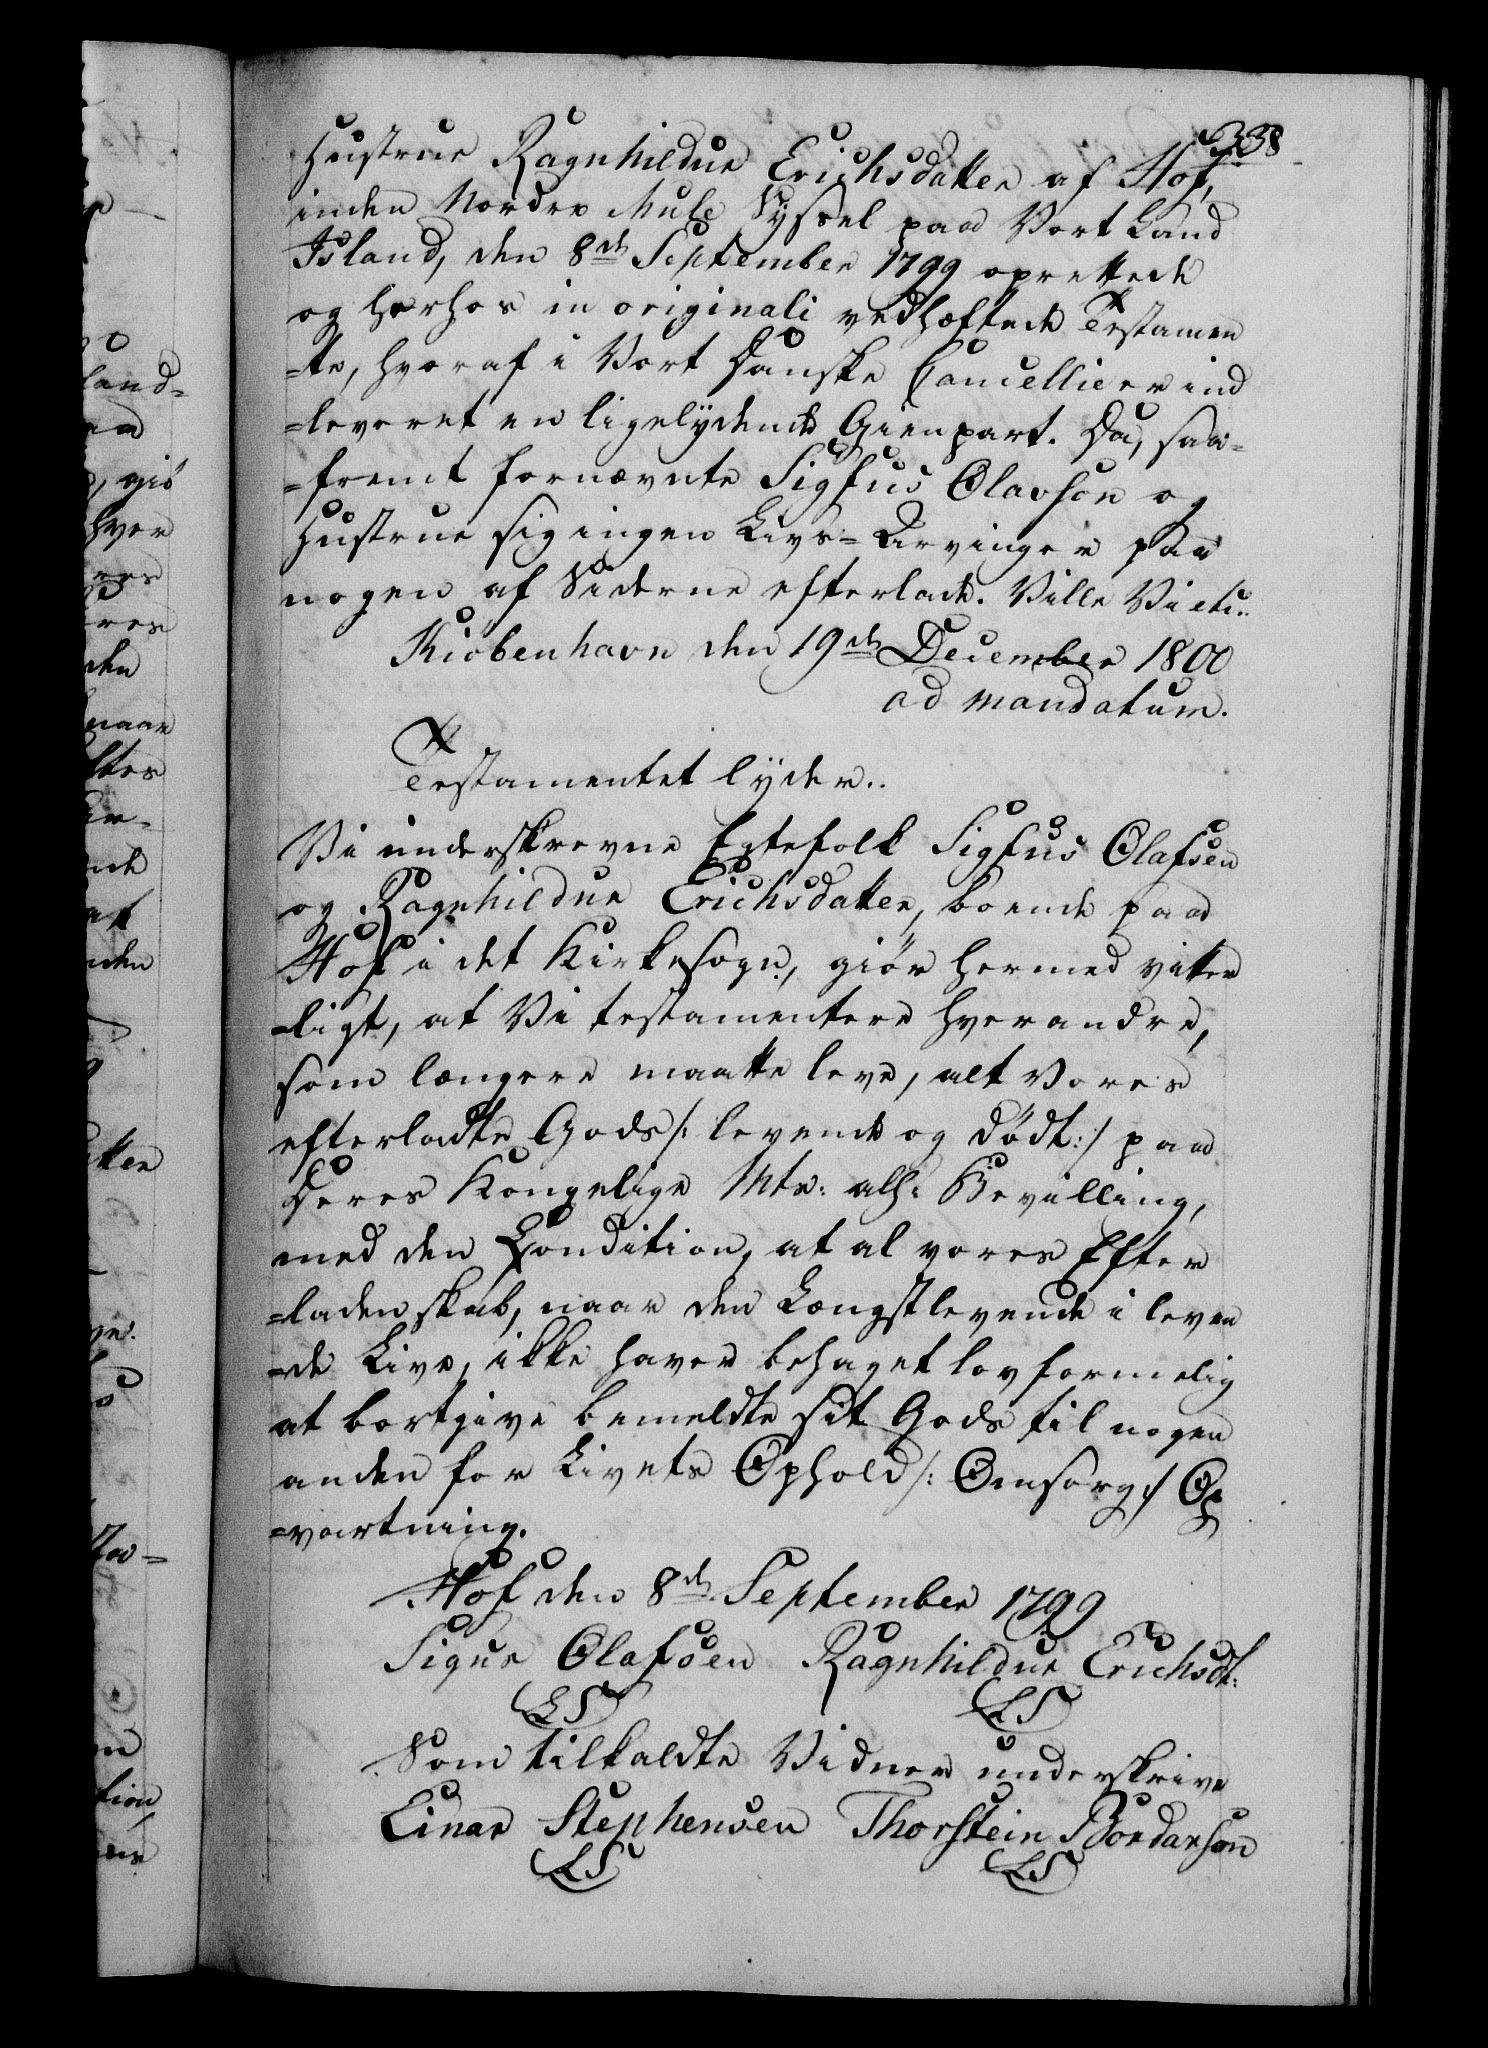 338
Hustrue Ragnhildur Erichsdatter af Hof,
inden Nordre Mule Syssel paa Vort Land
Island, den 8de September 1799 oprettede
og herhos in originali vedhæftede Testamen
=te, hvoraf i Vort Danske Cancellie er ind
=leveret en ligelydende Gienpart. Da, saa=
=fremt fornævnte Sigfus Olavson og
Hustrue sig ingen Livs=Arvinger paa
nogen af Siderne efterlade. Ville Vi etc:.
Kiöbenhavn den 19de December 1800
ad mandatum.
Testamentet lyder..
Vi underskrevne Egtefolk Sigfus Olafsen
og Ragnhildur Erichsdatter, boende paa
Hof i det Kirkesogn, giör hermed vitter
=ligt, at Vi testamentere hverandre,
som længere maatte leve, alt Vores
efterladte Gods /: levende og dödt :/ paa
Deres Kongelige Mts: alh: Bevilling,
med den Condition, at al vores Efter
=ladenskab, naar den Længstlevende i leven
=de Live, ikke haver behaget lovformelig
at bortgive bemeldte sit Gods til nogen
anden for Livets Ophold /: Omsorg :/ Op
=vartning.
Hof den 8de September 1799
Sigus Olafsen Ragnhildur Erichsdt:
(LS) (LS)
Som tilkaldte Vidner underskrive
Einar Stephensen Thorstein Bordarson
(LS) (LS)